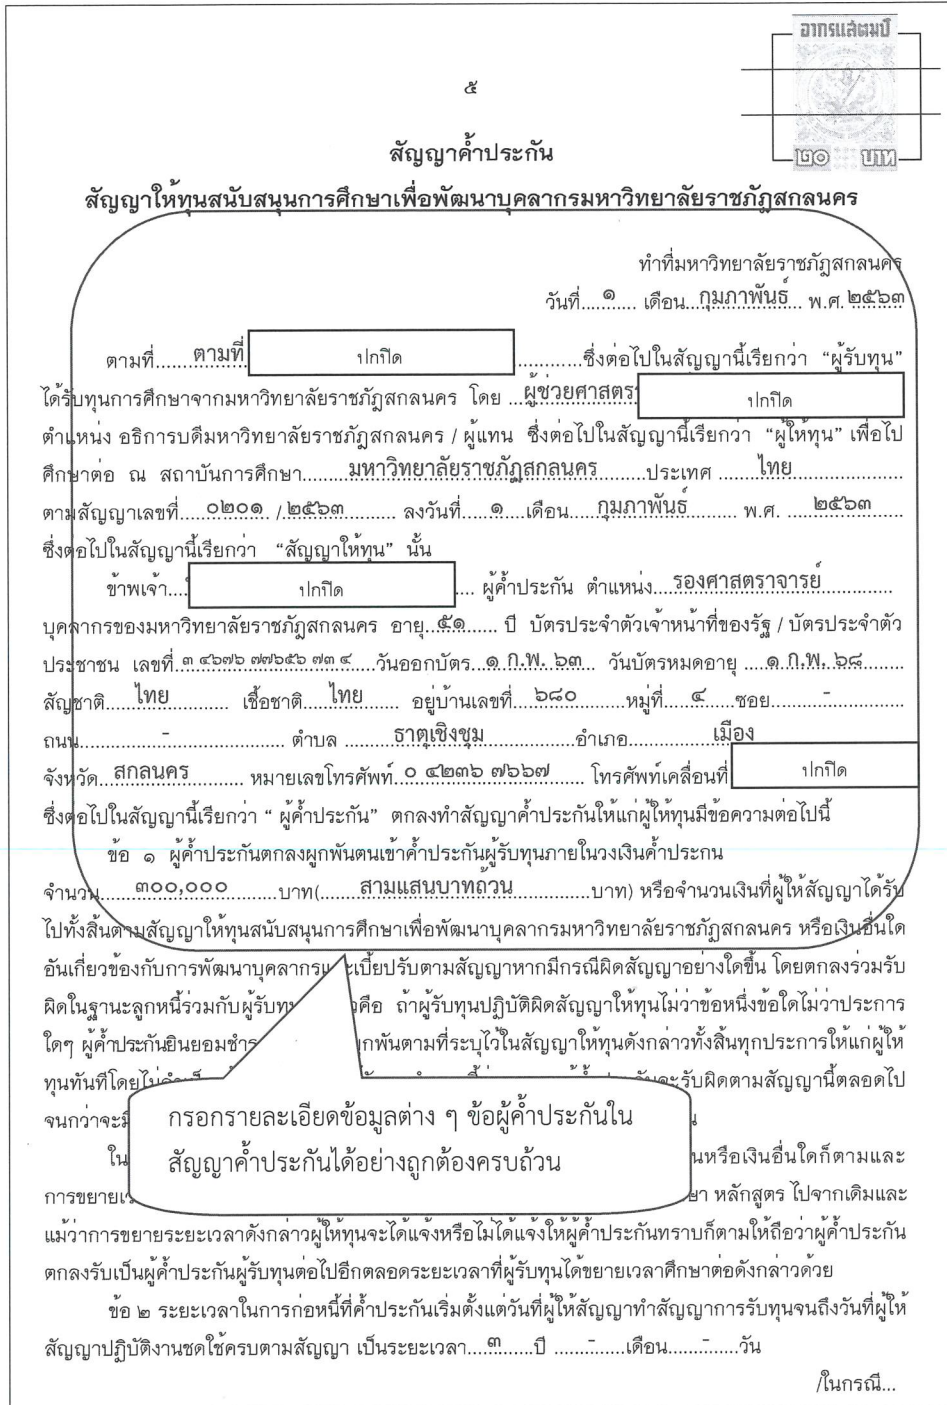 อากรแสตมป์
๒๐ บาท
๕
สัญญาค้ำประกัน
สัญญาให้ทุนสนับสนุนการศึกษาเพื่อพัฒนาบุคลากรมหาวิทยาลัยราชภัฏสกลนคร
ทำที่มหาวิทยาลัยราชภัฏสกลนคร
วันที่....๑..... เดือน...กุมภาพันธ์... พ.ศ. ๒๕๖๓
ตามที่......ตามที่ ปกปิด ............ซึ่งต่อไปในสัญญานี้เรียกว่า “ผู้รับทุน”
ได้รับทุนการศึกษาจากมหาวิทยาลัยราชภัฏสกลนคร โดย ...ผู้ช่วยศาสตร ปกปิด
ตำแหน่ง อธิการบดีมหาวิทยาลัยราชภัฏสกลนคร / ผู้แทน ซึ่งต่อไปในสัญญานี้เรียกว่า “ผู้ให้ทุน” เพื่อไป
ศึกษาต่อ ณ สถาบันการศึกษา.......มหาวิทยาลัยราชภัฏสกลนคร........ประเทศ ......ไทย..........
ตามสัญญาเลขที่....๐๒๐๑ /๒๕๖๓........ ลงวันที่....๑...เดือน.....กุมภาพันธ์...... พ.ศ. ....๒๕๖๓......
ซึ่งต่อไปในสัญญานี้เรียกว่า “สัญญาให้ทุน” นั้น
ข้าพเจ้า.... ปกปิด .... ผู้ค้ำประกัน ตำแหน่ง...รองศาสตราจารย์...........
บุคลากรของมหาวิทยาลัยราชภัฏสกลนคร อายุ..๕๑....... ปี บัตรประจำตัวเจ้าหน้าที่ของรัฐ / บัตรประจำตัว
ประชาชน เลขที่.๓ ๔๖๗๖ ๗๗๖๕๖ ๗๓ ๔....วันออกบัตร..๑ ก.พ. ๖๓... วันบัตรหมดอายุ ....๑ ก.พ. ๖๘......
สัญชาติ.....ไทย.......... เชื้อชาติ.....ไทย...... อยู่บ้านเลขที่....๖๘๐........หมู่ที่.....๔.....ซอย........-..........
ถนน............-............... ตำบล ........ธาตุเชิงชุม...........อำเภอ............เมือง
จังหวัด..สกลนคร....... หมายเลขโทรศัพท์..๐ ๔๒๓๖ ๗๖๖๗..... โทรศัพท์เคลื่อนที่ ปกปิด
ซึ่งต่อไปในสัญญานี้เรียกว่า “ ผู้ค้ำประกัน” ตกลงทำสัญญาค้ำประกันให้แก่ผู้ให้ทุนมีข้อความต่อไปนี้
ข้อ ๑ ผู้ค้ำประกันตกลงผูกพันตนเข้าค้ำประกันผู้รับทุนภายในวงเงินค้ำประกน
จำนวน.....๓๐๐,๐๐๐........บาท(......สามแสนบาทถ้วน...........บาท) หรือจำนวนเงินที่ผู้ให้สัญญาได้รับ
ไปทั้งสิ้นตามสัญญาให้ทุนสนับสนุนการศึกษาเพื่อพัฒนาบุคลากรมหาวิทยาลัยราชภัฏสกลนคร หรือเงินอื่นใด
อันเกี่ยวข้องกับการพัฒนาบุคลากร ะเบี้ยปรับตามสัญญาหากมีกรณีผิดสัญญาอย่างใดขึ้น โดยตกลงร่วมรับ
ผิดในฐานะลูกหนี้ร่วมกับผู้รับทุน วคือ ถ้าผู้รับทุนปฏิบัติผิดสัญญาให้ทุนไม่ว่าข้อหนึ่งข้อใดไม่ว่าประการ
ใดๆ ผู้ค้ำประกันยินยอมชำร กพันตามที่ระบุไว้ในสัญญาให้ทุนดังกล่าวทั้งสิ้นทุกประการให้แก่ผู้ให้
ทุนทันทีโดยไม่ จะรับผิดตามสัญญานี้ตลอดไป
จนกว่าจะมี
กรอกรายละเอียดข้อมูลต่าง ๆ ข้อผู้ค้ำประกันใน
สัญญาค้ำประกันได้อย่างถูกต้องครบถ้วน
ใน นหรือเงินอื่นใดก็ตามและ
การขยายเว ษา หลักสูตร ไปจากเดิมและ
แม้ว่าการขยายระยะเวลาดังกล่าวผู้ให้ทุนจะได้แจ้งหรือไม่ได้แจ้งให้ผู้ค้ำประกันทราบก็ตามให้ถือว่าผู้ค้ำประกัน
ตกลงรับเป็นผู้ค้ำประกันผู้รับทุนต่อไปอีกตลอดระยะเวลาที่ผู้รับทุนได้ขยายเวลาศึกษาต่อดังกล่าวด้วย
ข้อ ๒ ระยะเวลาในการก่อหนี้ที่ค้ำประกันเริ่มตั้งแต่วันที่ผู้ให้สัญญาทำสัญญาการรับทุนจนถึงวันที่ผู้ให้
สัญญาปฏิบัติงานชดใช้ครบตามสัญญา เป็นระยะเวลา....๓......ปี .....-.....เดือน.....-.....วัน
/ในกรณี...